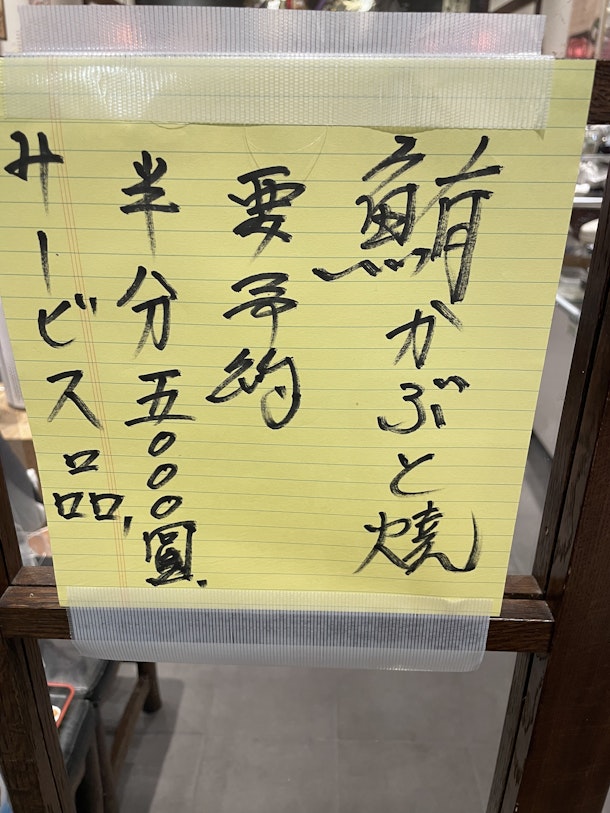 鮪かぶと焼
要予約
半分五〇〇〇圓
サービス品